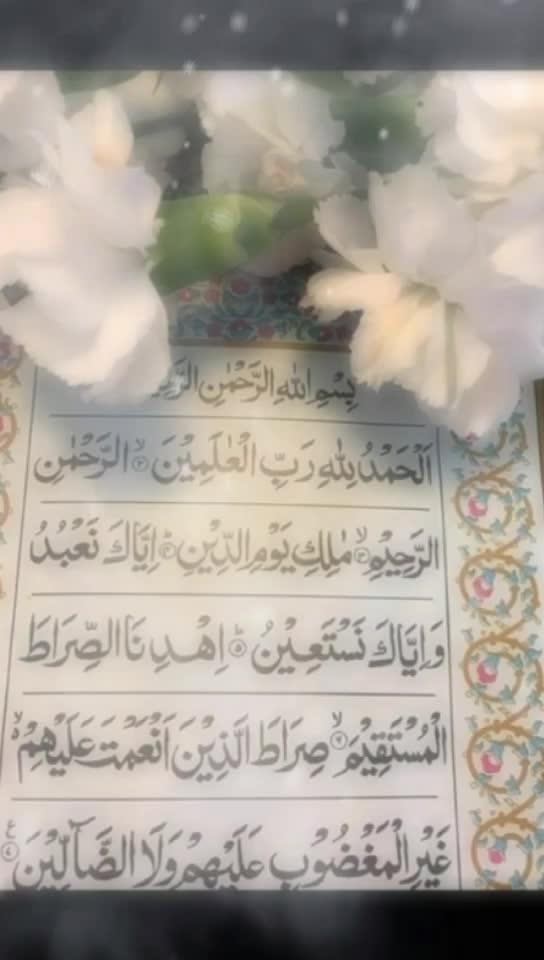 بِسْمِ اللهِ الرَّحْمٰنِ
اَلْحَمْدُ لِلّٰهِ رَبِّ الْعٰلَمِيْنَ ۙ﴿۲﴾ الرَّحْمٰنِ
الرَّحِيْمِ ۙ﴿۳﴾ مٰلِكِ يَوْمِ الدِّيْنِ ؕ﴿۴﴾ اِيَّاكَ نَعْبُدُ
وَاِيَّاكَ نَسْتَعِيْنُ ؕ﴿۵﴾ اِهْدِنَا الصِّرَاطَ
الْمُسْتَقِيْمَ ۙ﴿۶﴾ صِرَاطَ الَّذِيْنَ اَنْعَمْتَ عَلَيْهِمْ ۙ۬
غَيْرِ الْمَغْضُوْبِ عَلَيْهِمْ وَلَا الضَّآلِّيْنَ